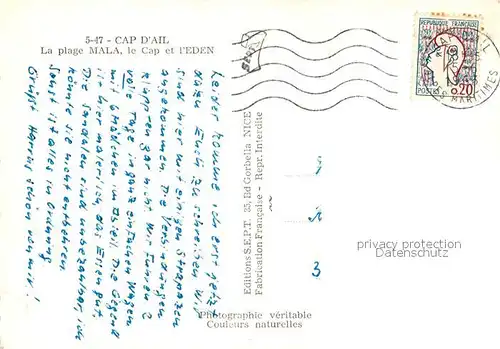 5-47 - CAP D'AIL
La plage MALA, le Cap et l'EDEN
REPUBLIQUE FRANÇAISE
POSTES
0,20
MARITIMES
Leider komme ich erst jetzt
dazu Euch zu schreiben. Wir
sind hier mit einigen Strapazen
angekommen. Die Verbindungen
klappten gar nicht. Nur fuhren 2
volle Tage in ganz einfachen Wagen
mit 6 Mädchen im Abteil. Die Gegend
ist hier malerisch, das Essen gut.
Die Sandalen sind unbezahlbar, ich
könnte sie nicht entbehren.
Sonst ist alles in Ordnung
Grüßt Harras schön von mir!
Editions S.E.P.T. 35, Bd Gorbella NICE
Fabrication Française - Repr. Interdite
Photographie véritable
Couleurs naturelles
privacy protection
Datenschutz